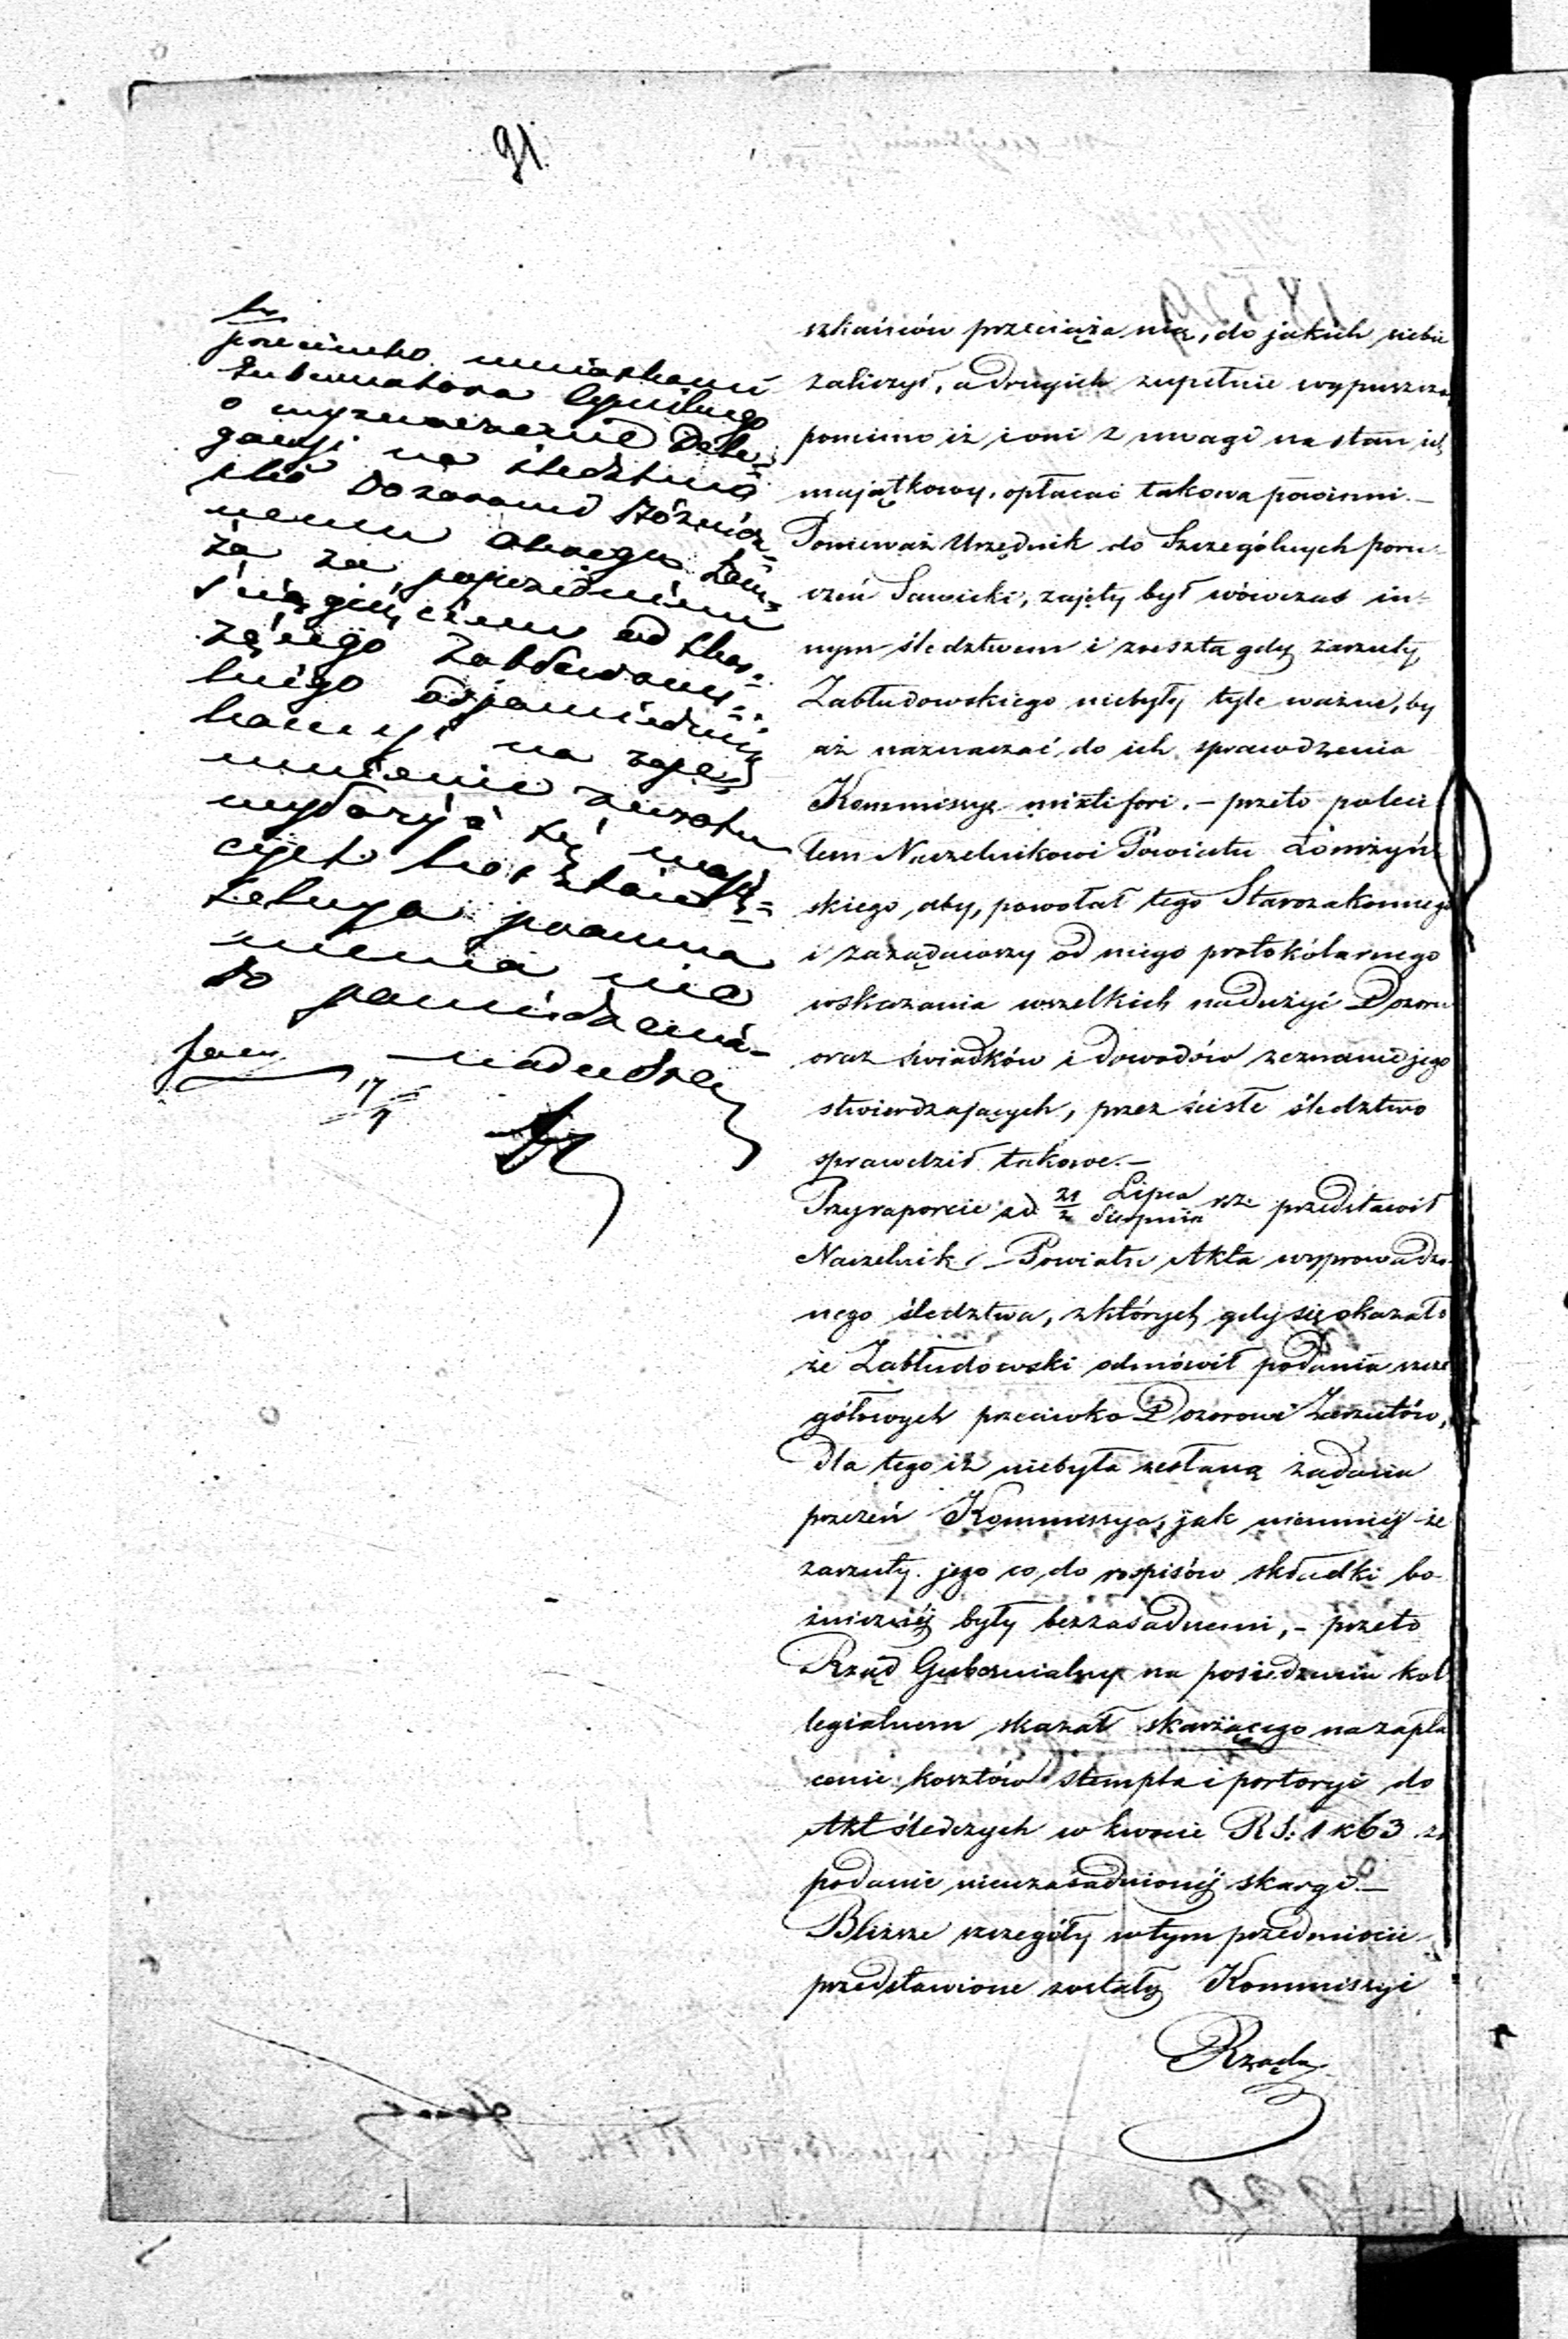 91.
przeciwko wnioskowi
Gubernatora Cywilnego
o wyznaczenie Dele-
gacyi na śledztwo
Dozorowi Bóżnicz-
nemu Okręgu Łom-
ża za poprzedniem
ściągnięciem od skar-
żącego Zabłudows-
kiego odpowiedniej
kaucyi na zape-
wnienie zwrotu
wydarzyć się mogą-
cych kosztów
Ketuya prawna
mienia nie
do powiedzenia
17
9
szkańców przeciąża nią, do jakich siebie
zaliczył, a drugich zupełnie wypuszcza,
pomimo iż i oni z uwagi na stan ich
majątkowy, opłacać takową powinni.—
Ponieważ Urzędnik do Szczególnych poru-
czeń Sawicki, zajęty był wówczas in-
nym śledztwem i zresztą gdy zarzuty
Zabłudowskiego niebyły tyle ważne, by
aż naznaczać do ich sprawdzenia
Kommissyę mixti fori.— przeto poleci
łem Naczelnikowi Powiatu Łomżyń-
skiego, aby, powołał tego Starozakonnego
i zażądawszy od niego protokólarnego
wskazania wszelkich nadużyć Dozoru
oraz świadków i dowodów zeznanie jego
stwierdzających, przez ścisłe śledztwo
sprawdził takowe.—
Przy raporcie z d. 21/2 Lipca/Sierpnia rz. przedstawił
Naczelnik Powiatu Akta wyprowadzo-
nego śledztwa, z których gdy się okazało
że Zabłudowski odmówił podania szcze
gółowych przeciwko Dozorowi Zarzutów,
dla tego iż niebyła zesłaną żądana
przezeń Kommissya, jak niemniej że
zarzuty jego co do rospisów składki bo-
żniczéj były bezzasadnemi,— przeto
Rząd Gubernialny na posiedzeniu kol
legialnem skazał skarżącego na zapła
cenie kosztów stempla i portoryi do
Akt śledczych w kwocie RS: 1 k 63 za
podanie nieuzasadnionéj skargi.—
Bliższe szczegóły w tym przedmiocie
przedstawione zostały Kommissyi
Rządo-